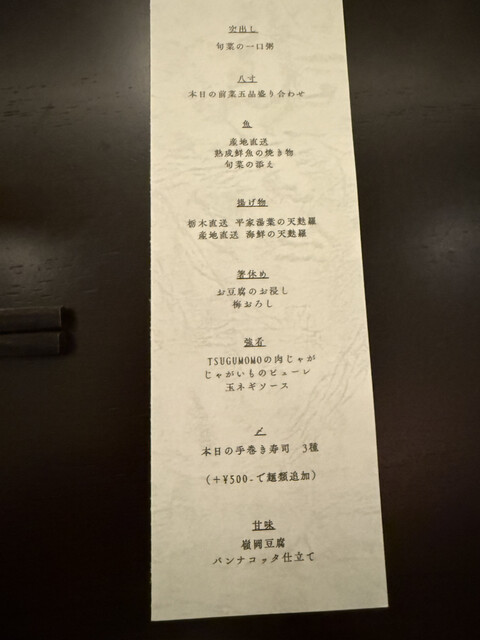 突出し
旬菜の一口粥
八寸
本日の前菜五品盛り合わせ
魚
産地直送
熟成鮮魚の焼き物
旬菜の添え
揚げ物
栃木直送 平家湯葉の天麩羅
産地直送 海鮮の天麩羅
箸休め
お豆腐のお浸し
梅おろし
強肴
TSUGUMOMOの肉じゃが
じゃがいものピューレ
玉ネギソース
〆
本日の手巻き寿司 3種
(+¥500-で麺類追加)
甘味
嶺岡豆腐
パンナコッタ仕立て